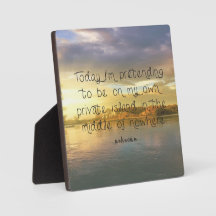 Today I'm pretending
to be on my own
private island in the
middle of nowhere
unknown